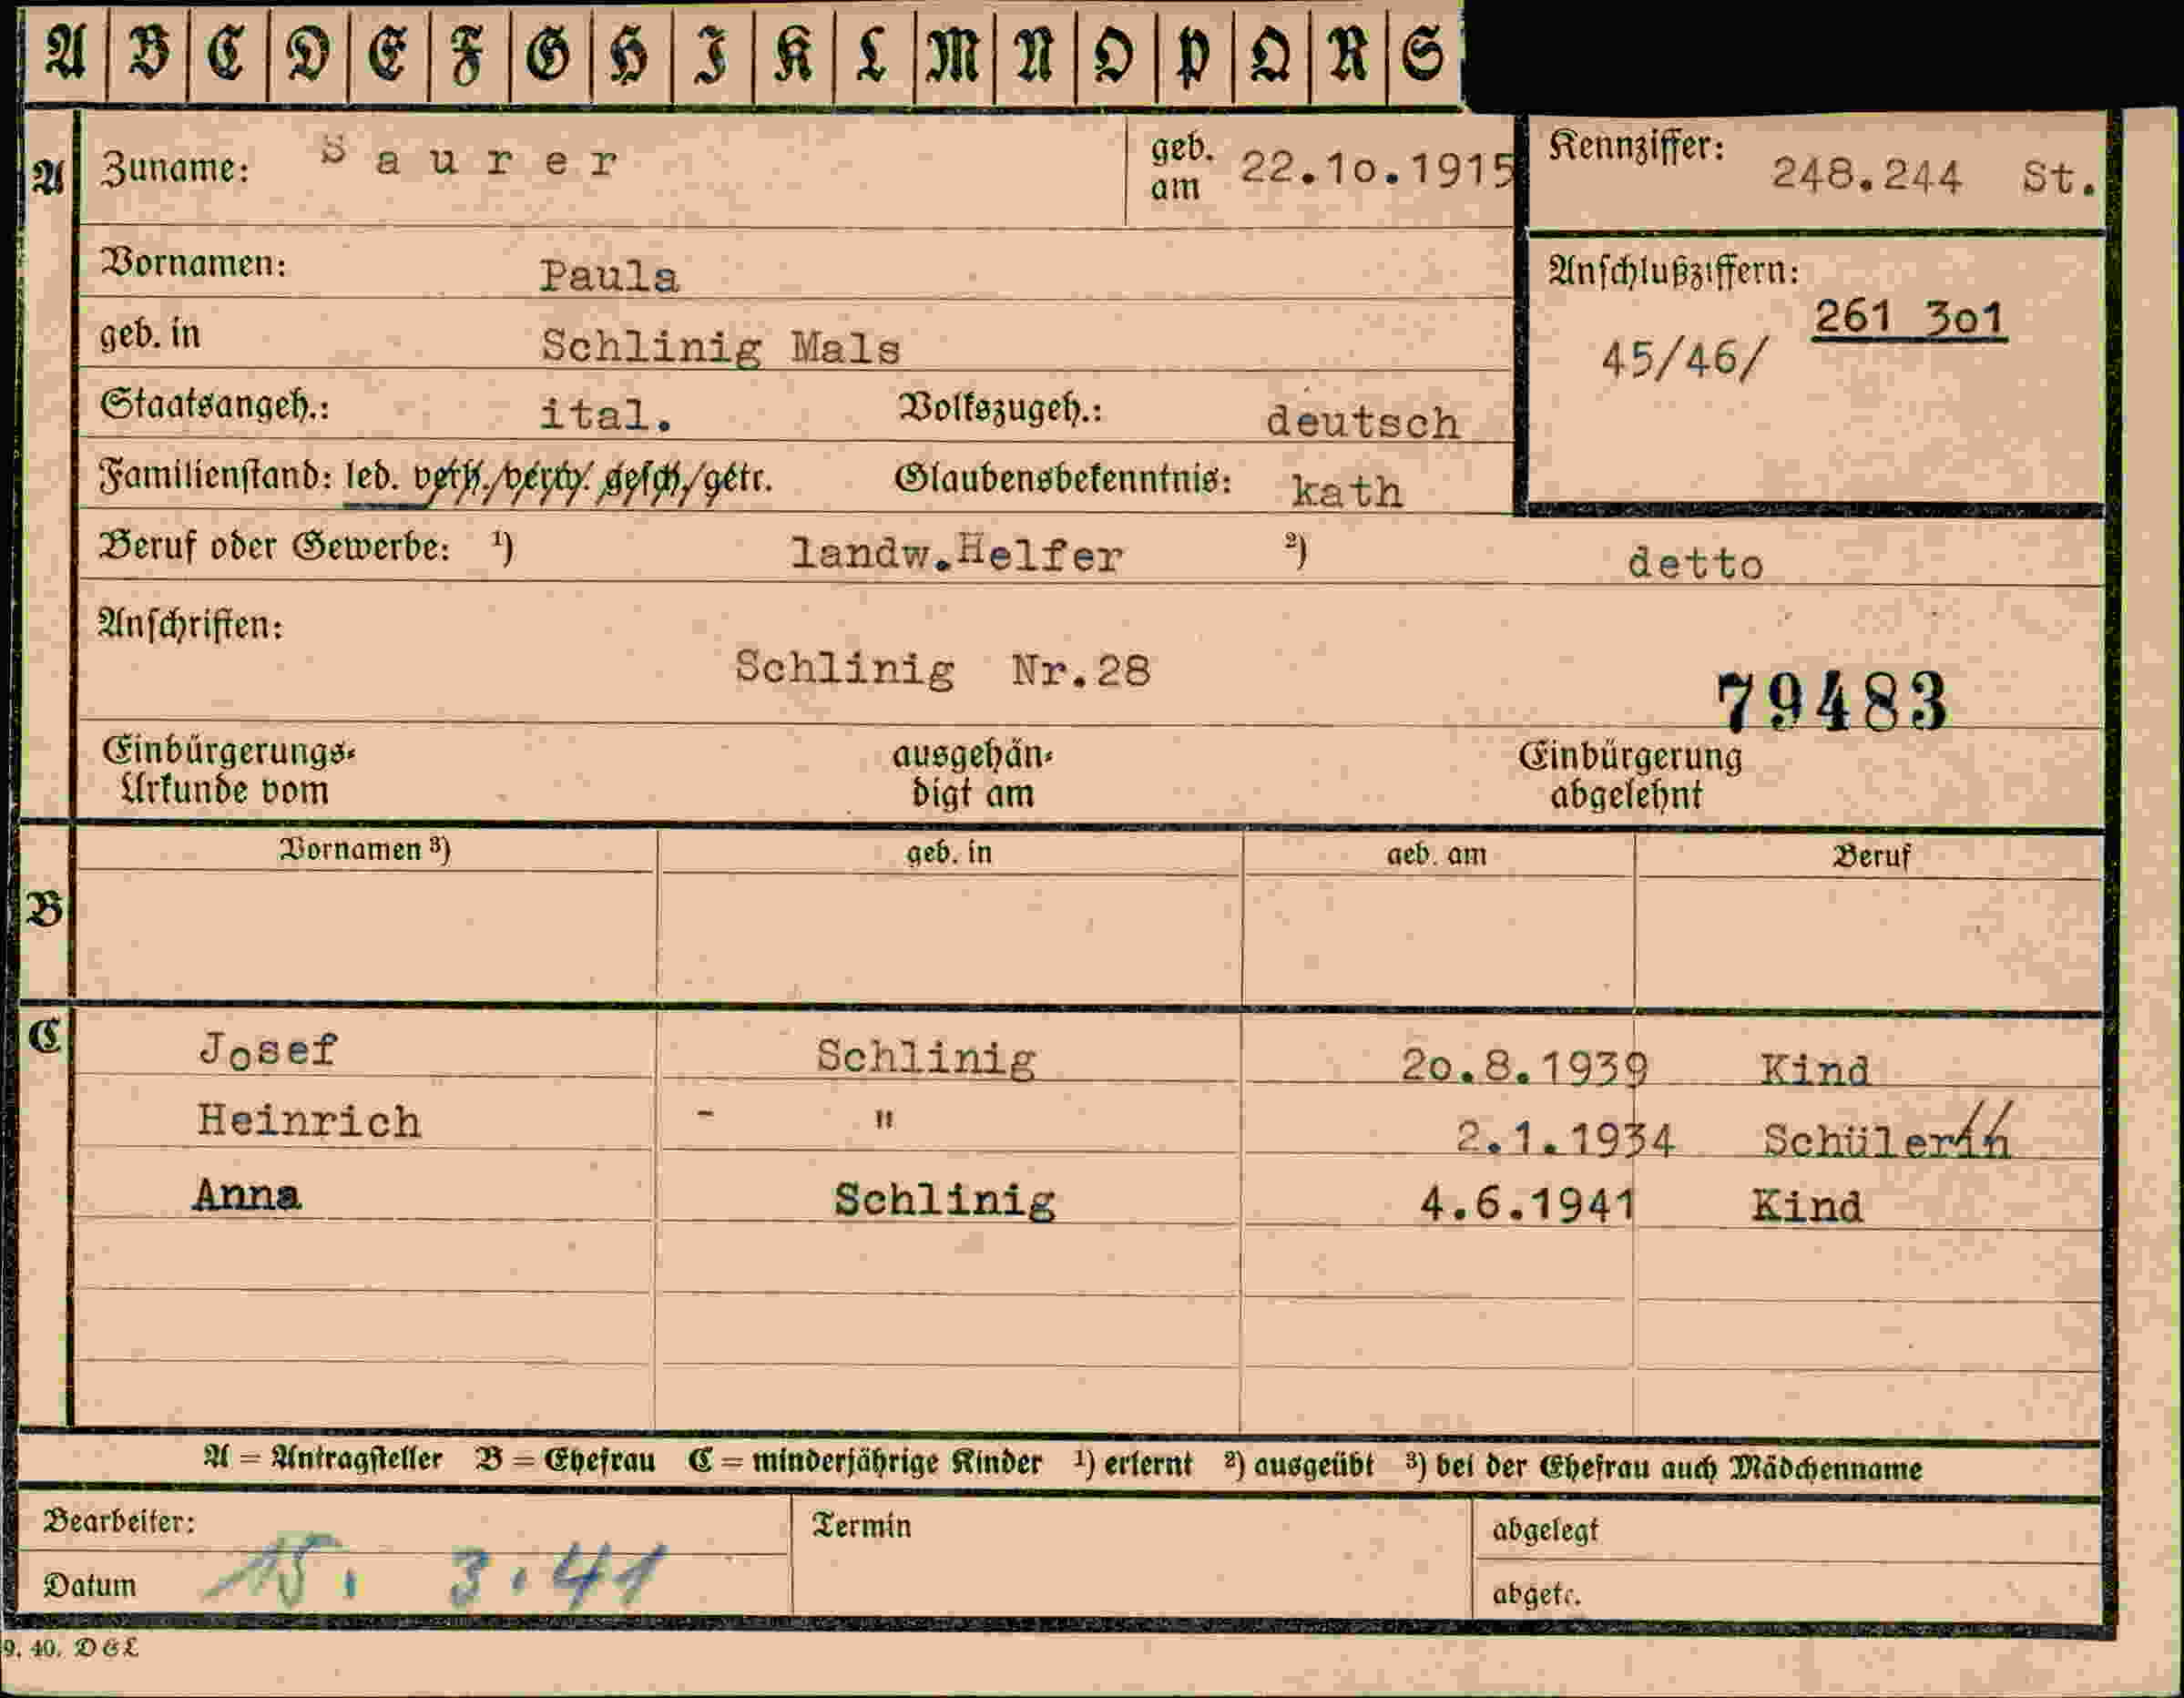 A B C D E F G H I K L M N O P Q R S
A Zuname: Saurer geb. am 22.10.1915 Kennziffer: 248.244 St.
Vornamen: Paula Anschlußziffern:
261 301
geb. in Schlinig Mals 45/46/
Staatsangeh.: ital. Volkszugeh.: deutsch
Familienstand: led. verh./verw. gesch./getr. Glaubensbekenntnis: kath
Beruf oder Gewerbe: 1) landw.Helfer 2) detto
Anschriften:
Schlinig Nr.28
79483
Einbürgerungs- ausgehän- Einbürgerung
Urkunde vom digt am abgelehnt
Vornamen 3) geb. in geb. am Beruf
B
C Josef Schlinig 20.8.1939 Kind
Heinrich - " 2.1.1934 Schülerin
Anna Schlinig 4.6.1941 Kind
A = Antragsteller B = Ehefrau C = minderjährige Kinder 1) erlernt 2) ausgeübt 3) bei der Ehefrau auch Mädchenname
Bearbeiter: Termin abgelegt
Datum 15. 3.41 abgetr.
9. 40. DGL